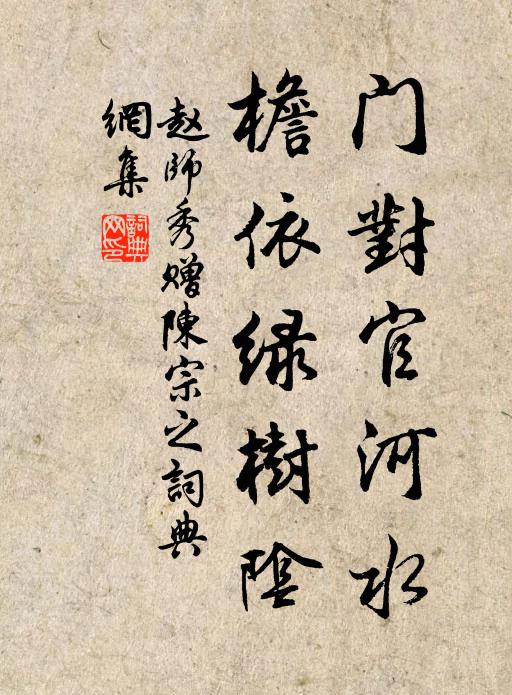 门對官河水
檐依绿樹陰
赵師秀赠陳宗之詞典
網集
詞典
网印